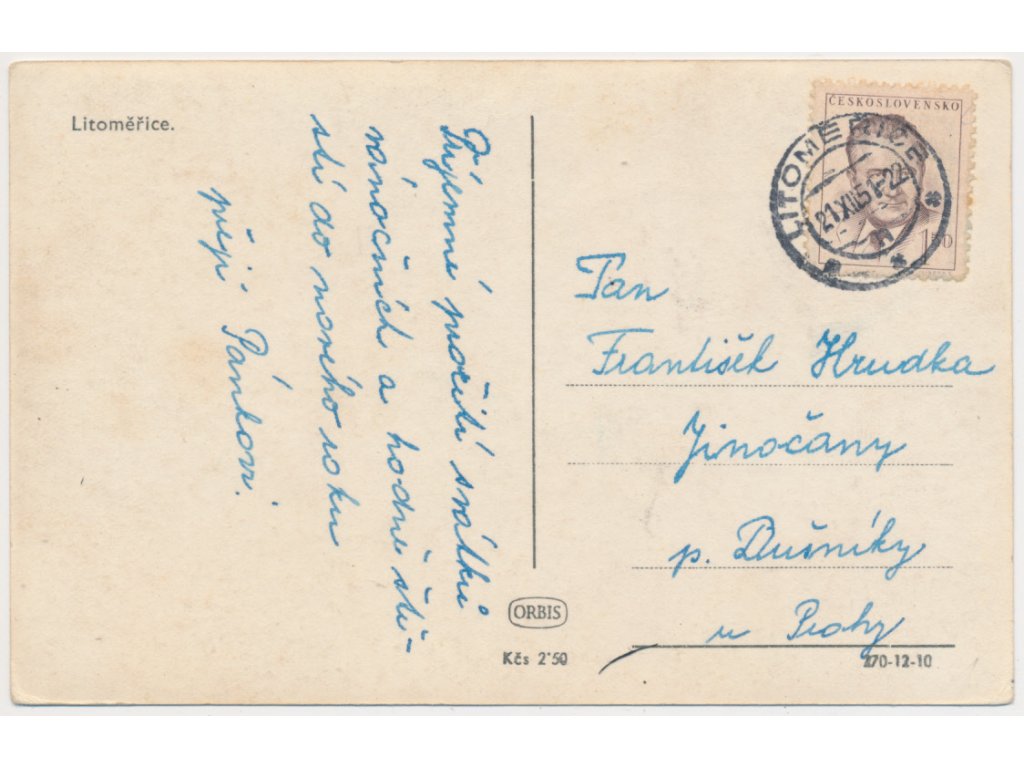 Litoměřice.
Příjemné prožití svátků
vánočních a hodně ště-
stí do nového roku
přejí Pánkovi.
ČESKOSLOVENSKO
1.50
LITOMĚŘICE
21.XII.51-22
Pan
František Hrudka
Jinočany
p. Dušníky
u Prahy
ORBIS
Kčs 2'50
270-12-10